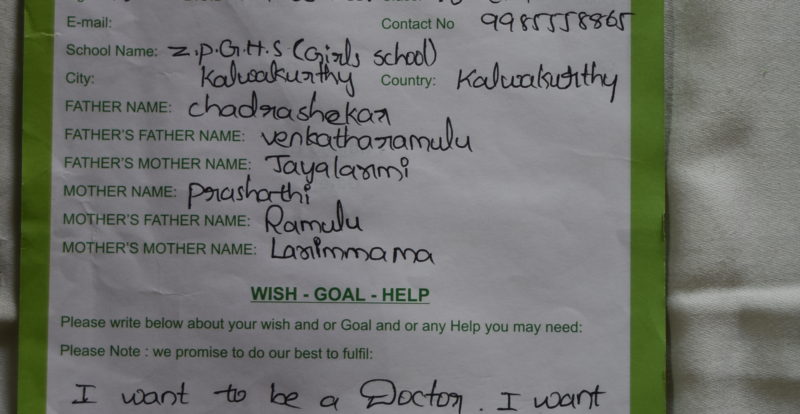 E-mail: Contact No 9985558865
School Name: Z.P.G.H.S (Girls school)
City: Kalwakurthy Country: Kalwakurthy
FATHER NAME: chadrashekar
FATHER'S FATHER NAME: venkatharamulu
FATHER'S MOTHER NAME: Jayalaxmi
MOTHER NAME: prashathi
MOTHER'S FATHER NAME: Ramulu
MOTHER'S MOTHER NAME: Laximmama
WISH - GOAL - HELP
Please write below about your wish and or Goal and or any Help you may need:
Please Note : we promise to do our best to fulfil:
I want to be a Doctor. I want